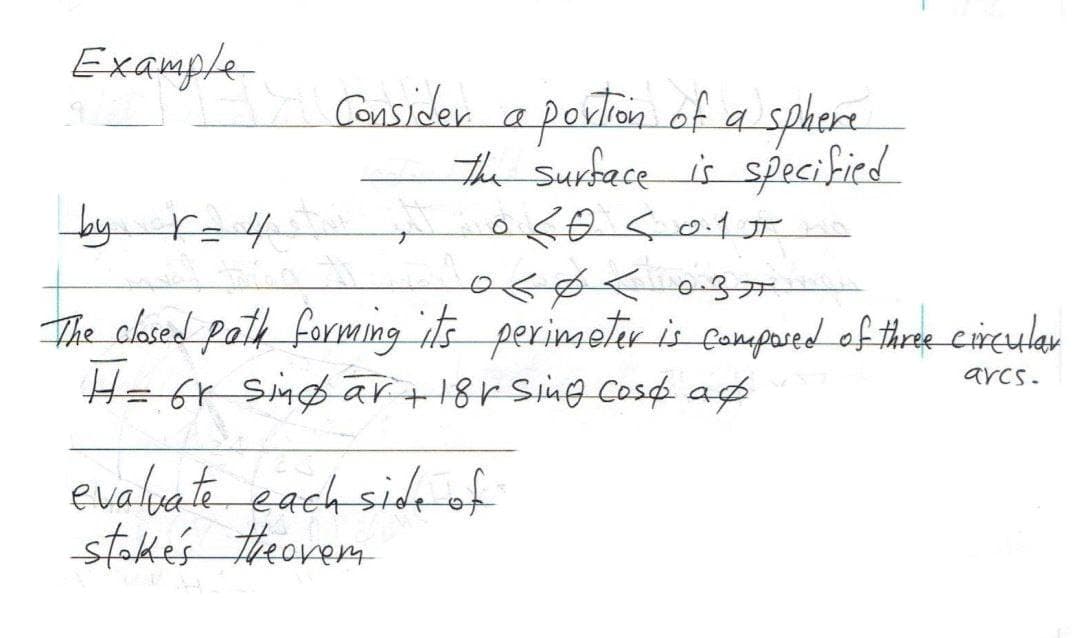 Example
Consider a portion of a sphere
the surface is specified
by r = 4 , 0 ≤ θ ≤ 0.1 π
0 ≤ ϕ ≤ 0.3 π
The closed path forming its perimeter is composed of three circular
arcs.
H̅ = 6r sinϕ a̅r + 18r sinθ cosϕ aϕ
evaluate each side of
stoke's theorem